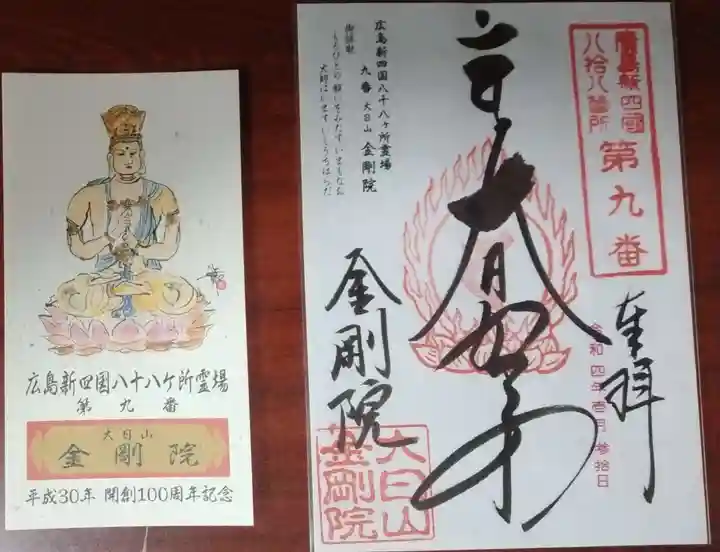 広島新四国八十八ケ所霊場
第九番
大日山
金剛院
平成30年 開創100周年記念
廣島新四國
八拾八箇所
第九番
奉拝
令和四年壱月参拾日
大日如来
広島新四国八十八ヶ所霊場
九番 大日山 金剛院
御詠歌
大師はいます
金剛院
大日山
金剛院